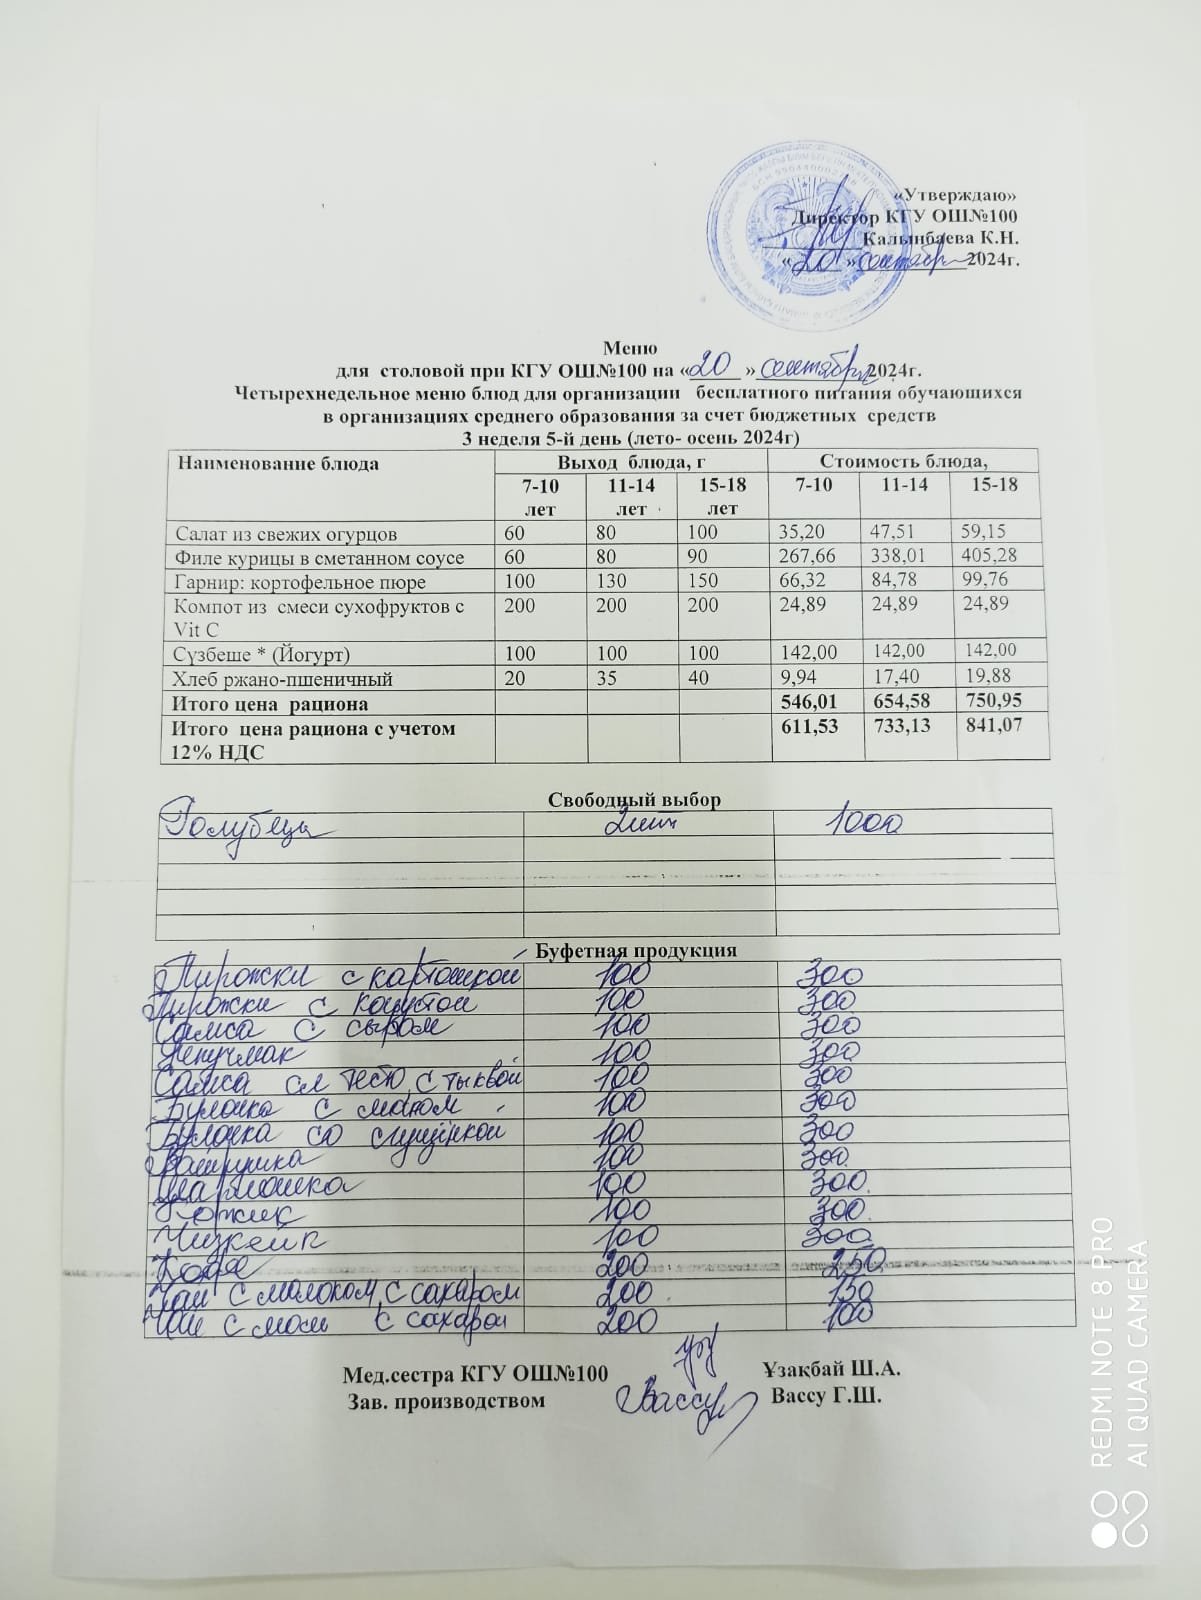 «Утверждаю»
Директор КГУ ОШ№100
Калынбаева К.Н.
«20» сентября 2024г.
Меню
для столовой при КГУ ОШ№100 на «20» сентября 2024г.
Четырехнедельное меню блюд для организации бесплатного питания обучающихся
в организациях среднего образования за счет бюджетных средств
3 неделя 5-й день (лето- осень 2024г)
Наименование блюда Выход блюда, г Стоимость блюда,
7-10 лет 11-14 лет 15-18 лет 7-10 11-14 15-18
Салат из свежих огурцов 60 80 100 35,20 47,51 59,15
Филе курицы в сметанном соусе 60 80 90 267,66 338,01 405,28
Гарнир: кортофельное пюре 100 130 150 66,32 84,78 99,76
Компот из смеси сухофруктов с 200 200 200 24,89 24,89 24,89
Vit C
Сүзбеше * (Йогурт) 100 100 100 142,00 142,00 142,00
Хлеб ржано-пшеничный 20 35 40 9,94 17,40 19,88
Итого цена рациона 546,01 654,58 750,95
Итого цена рациона с учетом 611,53 733,13 841,07
12% НДС
Свободный выбор
Голубецы 2шт 1000
Буфетная продукция
Пирожки с картошкой 100 300
Пирожки с капустой 100 300
Самса с сыром 100 300
Үшпучмак 100 300
Самса сл тесто с тыквой 100 300
Булочка с маком 100 300
Булочка со сгущенкой 100 300
Ватрушка 100 300
100 300
Коржик 100 300
Чизкейк 100 300
Кофе 200 250
Чай с молоком, с сахаром 200 150
Чай с сахаром 200 100
Мед.сестра КГУ ОШ№100 Ұзақбай Ш.А.
Зав. производством Вассу Г.Ш.
REDMI NOTE 8 PRO
AI QUAD CAMERA